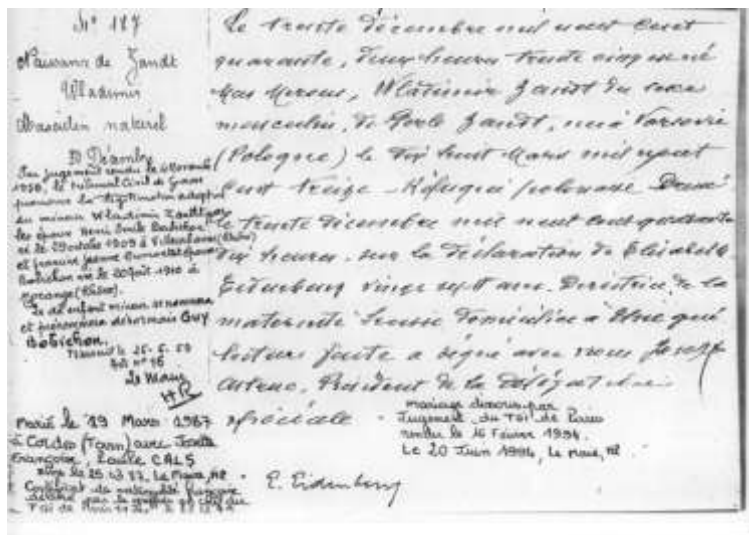 N° 187
Naissance de Zandt
Wladimir
Masculin naturel
30 Décembre
Par jugement rendu le 6 Novembre
1958, le Tribunal Civil de Grasse
prononce la légitimation adoptive
du mineur Wladimir Zandt par
les époux Henri Emile Bobichon
né le 29 octobre 1909 à Villeurbanne (Rhône)
et Francine Jeanne époux
Bobichon née le 20 août 1910 à
(Rhône).
Le dit enfant mineur se nommera
et prénommera désormais Guy
Bobichon.
25-6-59
Le Maire
Marié le 29 Mars 1967
à Cordes (Tarn) avec Josette
Françoise, Lucile CALS
Le Maire,
Certificat de nationalité française
délivré par le greffier en chef du
TGI de Paris
Le trente décembre mil neuf cent
quarante, deux heures trente cinq est né
Mas Mereus, Wladimir Zandt du sexe
masculin, de Perle Zandt, née à Varsovie
(Pologne) le dix huit Mars mil neuf
cent treize - Réfugiée polonaise Dressé
le trente décembre mil neuf cent quarante
dix heures, sur la déclaration de Elisabeth
Eidenbenz vingt sept ans, Directrice de la
maternité Suisse domiciliée à Elne qui
lecture faite a signé avec nous Joseph
Astruc, Président de la Délégation
spéciale.
mariage dissous par
Jugement du TGI de Paris
rendu le 16 Février 1994.
Le 20 Juin 1994, Le Maire,
E. Eidenbenz